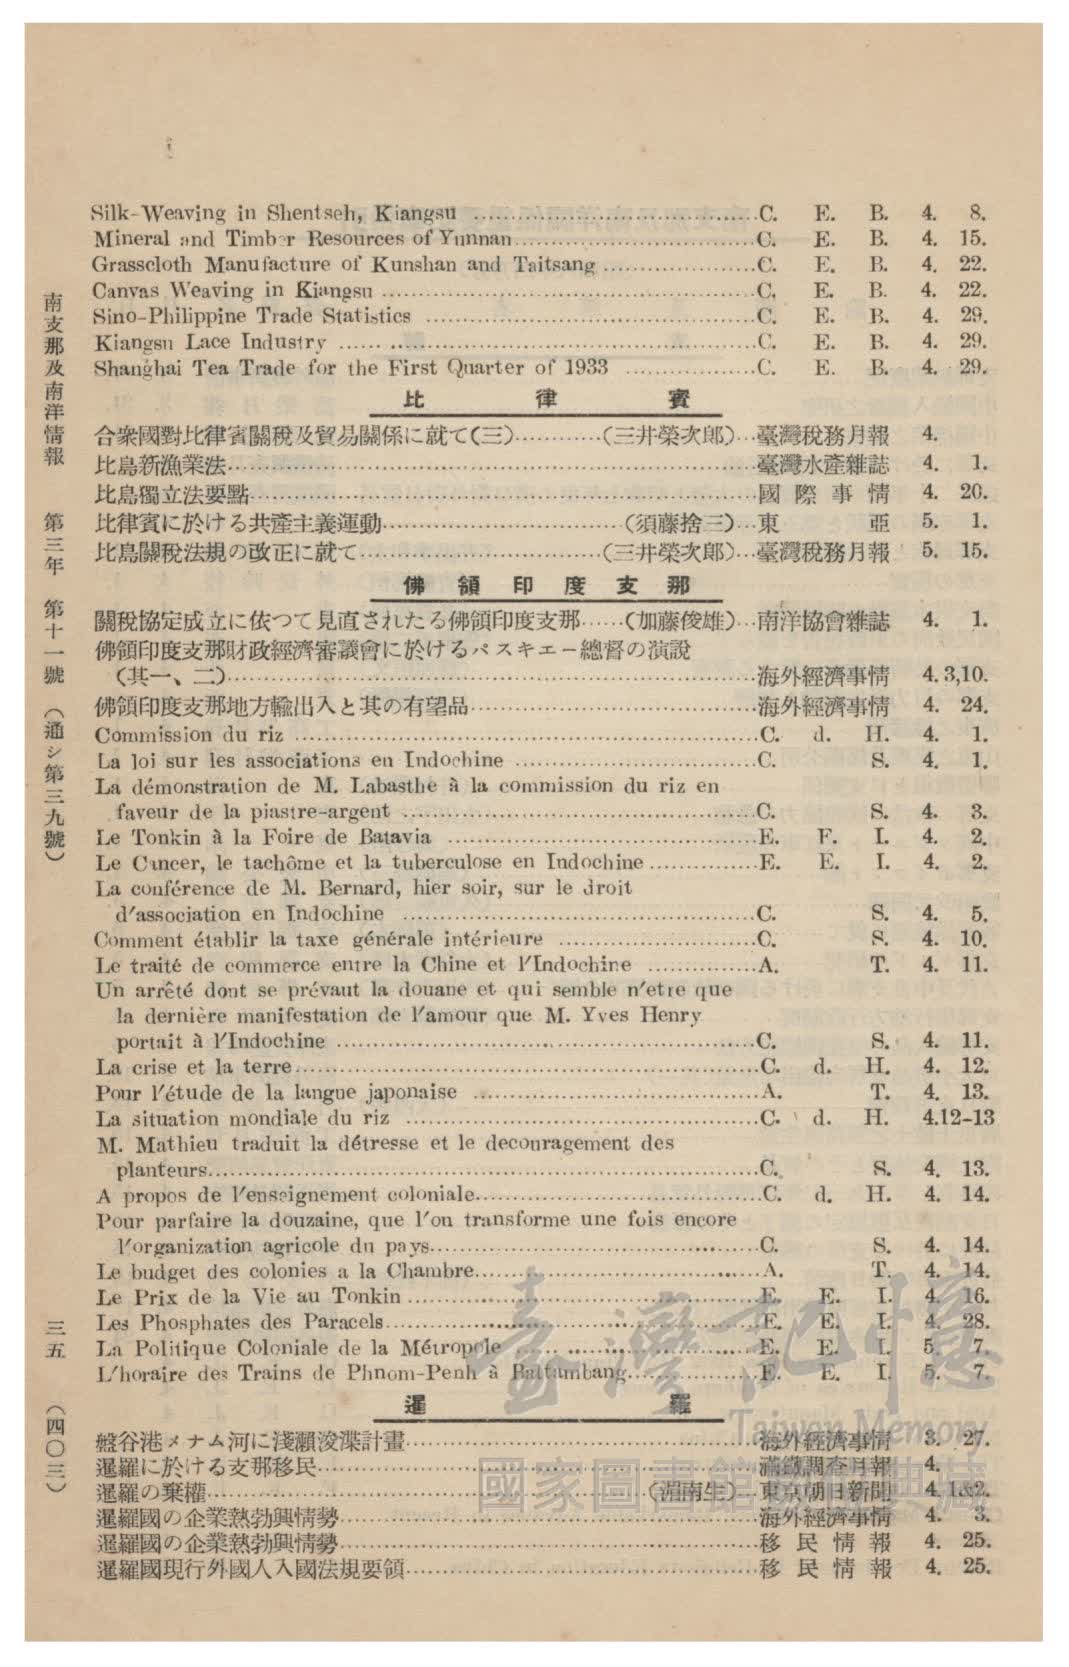 Silk-Weaving in Shentseh, Kiangsu ........................C. E. B. 4. 8.
Mineral and Timber Resources of Yunnan........................C. E. B. 4. 15.
Grasscloth Manufacture of Kunshan and Taitsang .....................C. E. B. 4. 22.
Canvas Weaving in Kiangsu ........................C. E. B. 4. 22.
Sino-Philippine Trade Statistics ........................C. E. B. 4. 29.
Kiangsu Lace Industry ........................C. E. B. 4. 29.
Shanghai Tea Trade for the First Quarter of 1933 ..................C. E. B. 4. 29.
比律賓
合衆國對比律賓關稅及貿易關係に就て(三)............(三井榮次郎)...臺灣稅務月報 4.
比島新漁業法........................臺灣水產雜誌 4. 1.
比島獨立法要點........................國際事情 4. 20.
比律賓に於ける共產主義運動........................(須藤捨三)...東亞 5. 1.
比島關稅法規の改正に就て........................(三井榮次郎)...臺灣稅務月報 5. 15.
佛領印度支那
關稅協定成立に依つて見直されたる佛領印度支那......(加藤俊雄)...南洋協會雜誌 4. 1.
佛領印度支那財政經濟審議會に於けるパスキエー總督の演說
(其一、二)........................海外經濟事情 4.3,10.
佛領印度支那地方輸出入と其の有望品........................海外經濟事情 4. 24.
Commission du riz ........................C. d. H. 4. 1.
La loi sur les associations en Indochine ........................C. S. 4. 1.
La démonstration de M. Labasthe à la commission du riz en
faveur de la piastre-argent ........................C. S. 4. 3.
Le Tonkin à la Foire de Batavia ........................E. F. I. 4. 2.
Le Cancer, le tachôme et la tuberculose en Indochine...............E. E. I. 4. 2.
La conférence de M. Bernard, hier soir, sur le droit
d'association en Indochine ........................C. S. 4. 5.
Comment établir la taxe générale intérieure ........................C. S. 4. 10.
Le traité de commerce entre la Chine et l'Indochine ...............A. T. 4. 11.
Un arrêté dont se prévaut la douane et qui semble n'etre que
la dernière manifestation de l'amour que M. Yves Henry
portait à l'Indochine ........................C. S. 4. 11.
La crise et la terre........................C. d. H. 4. 12.
Pour l'étude de la langue japonaise ........................A. T. 4. 13.
La situation mondiale du riz ........................C. d. H. 4.12-13
M. Mathieu traduit la détresse et le decouragement des
planteurs........................C. S. 4. 13.
A propos de l'enseignement coloniale........................C. d. H. 4. 14.
Pour parfaire la douzaine, que l'on transforme une fois encore
l'organization agricole du pays........................C. S. 4. 14.
Le budget des colonies a la Chambre........................A. T. 4. 14.
Le Prix de la Vie au Tonkin........................E. E. I. 4. 16.
Les Phosphates des Paracels........................E. E. I. 4. 28.
La Politique Coloniale de la Métropole ........................E. E. I. 5. 7.
L'horaire des Trains de Phnom-Penh à Battambang..................E. E. I. 5. 7.
暹羅
盤谷港メナム河に淺瀨浚渫計畫........................海外經濟事情 3. 27.
暹羅に於ける支那移民........................滿鐵調查月報 4.
暹羅の棄權........................(湄南生)...東京朝日新聞 4. 1&2.
暹羅國の企業熱勃興情勢........................海外經濟事情 4. 3.
暹羅國の企業熱勃興情勢........................移民情報 4. 25.
暹羅國現行外國人入國法規要領........................移民情報 4. 25.
南支那及南洋情報 第三年 第十一號 (通シ第三九號) 三五 (四〇三)
臺灣記憶
Taiwan Memory
國家圖書館數位典藏